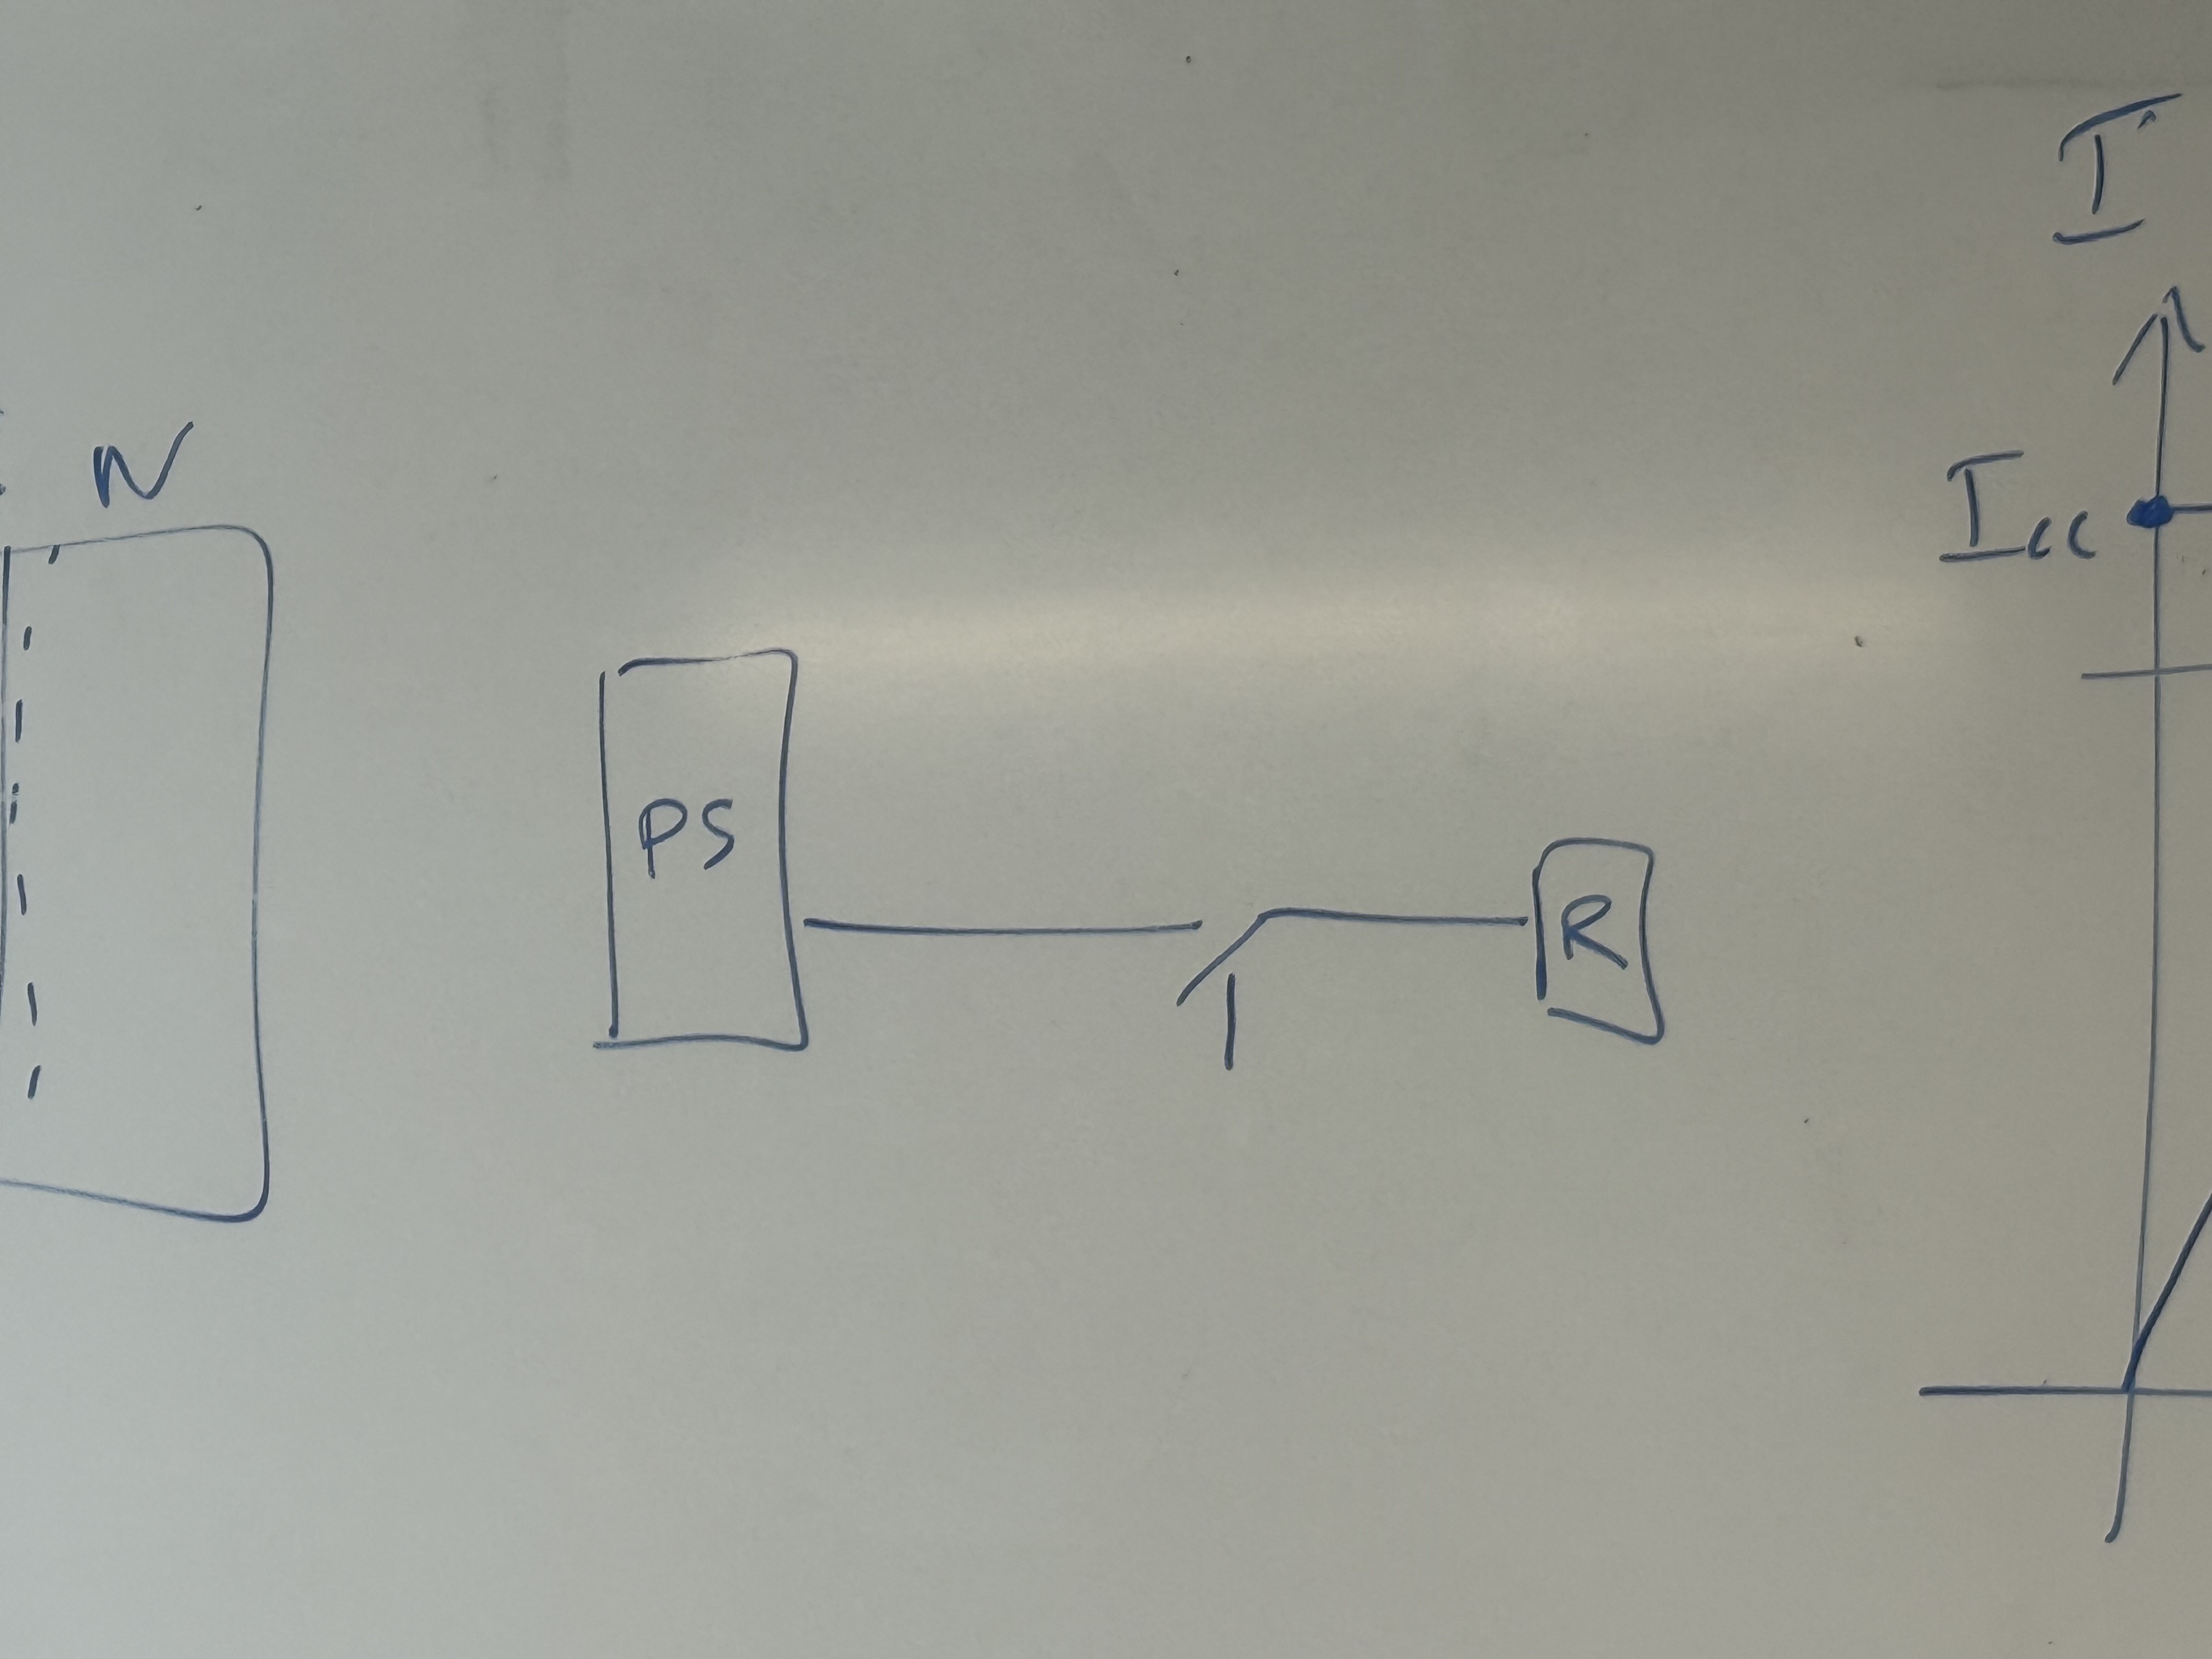 N
PS
R
I
Icc